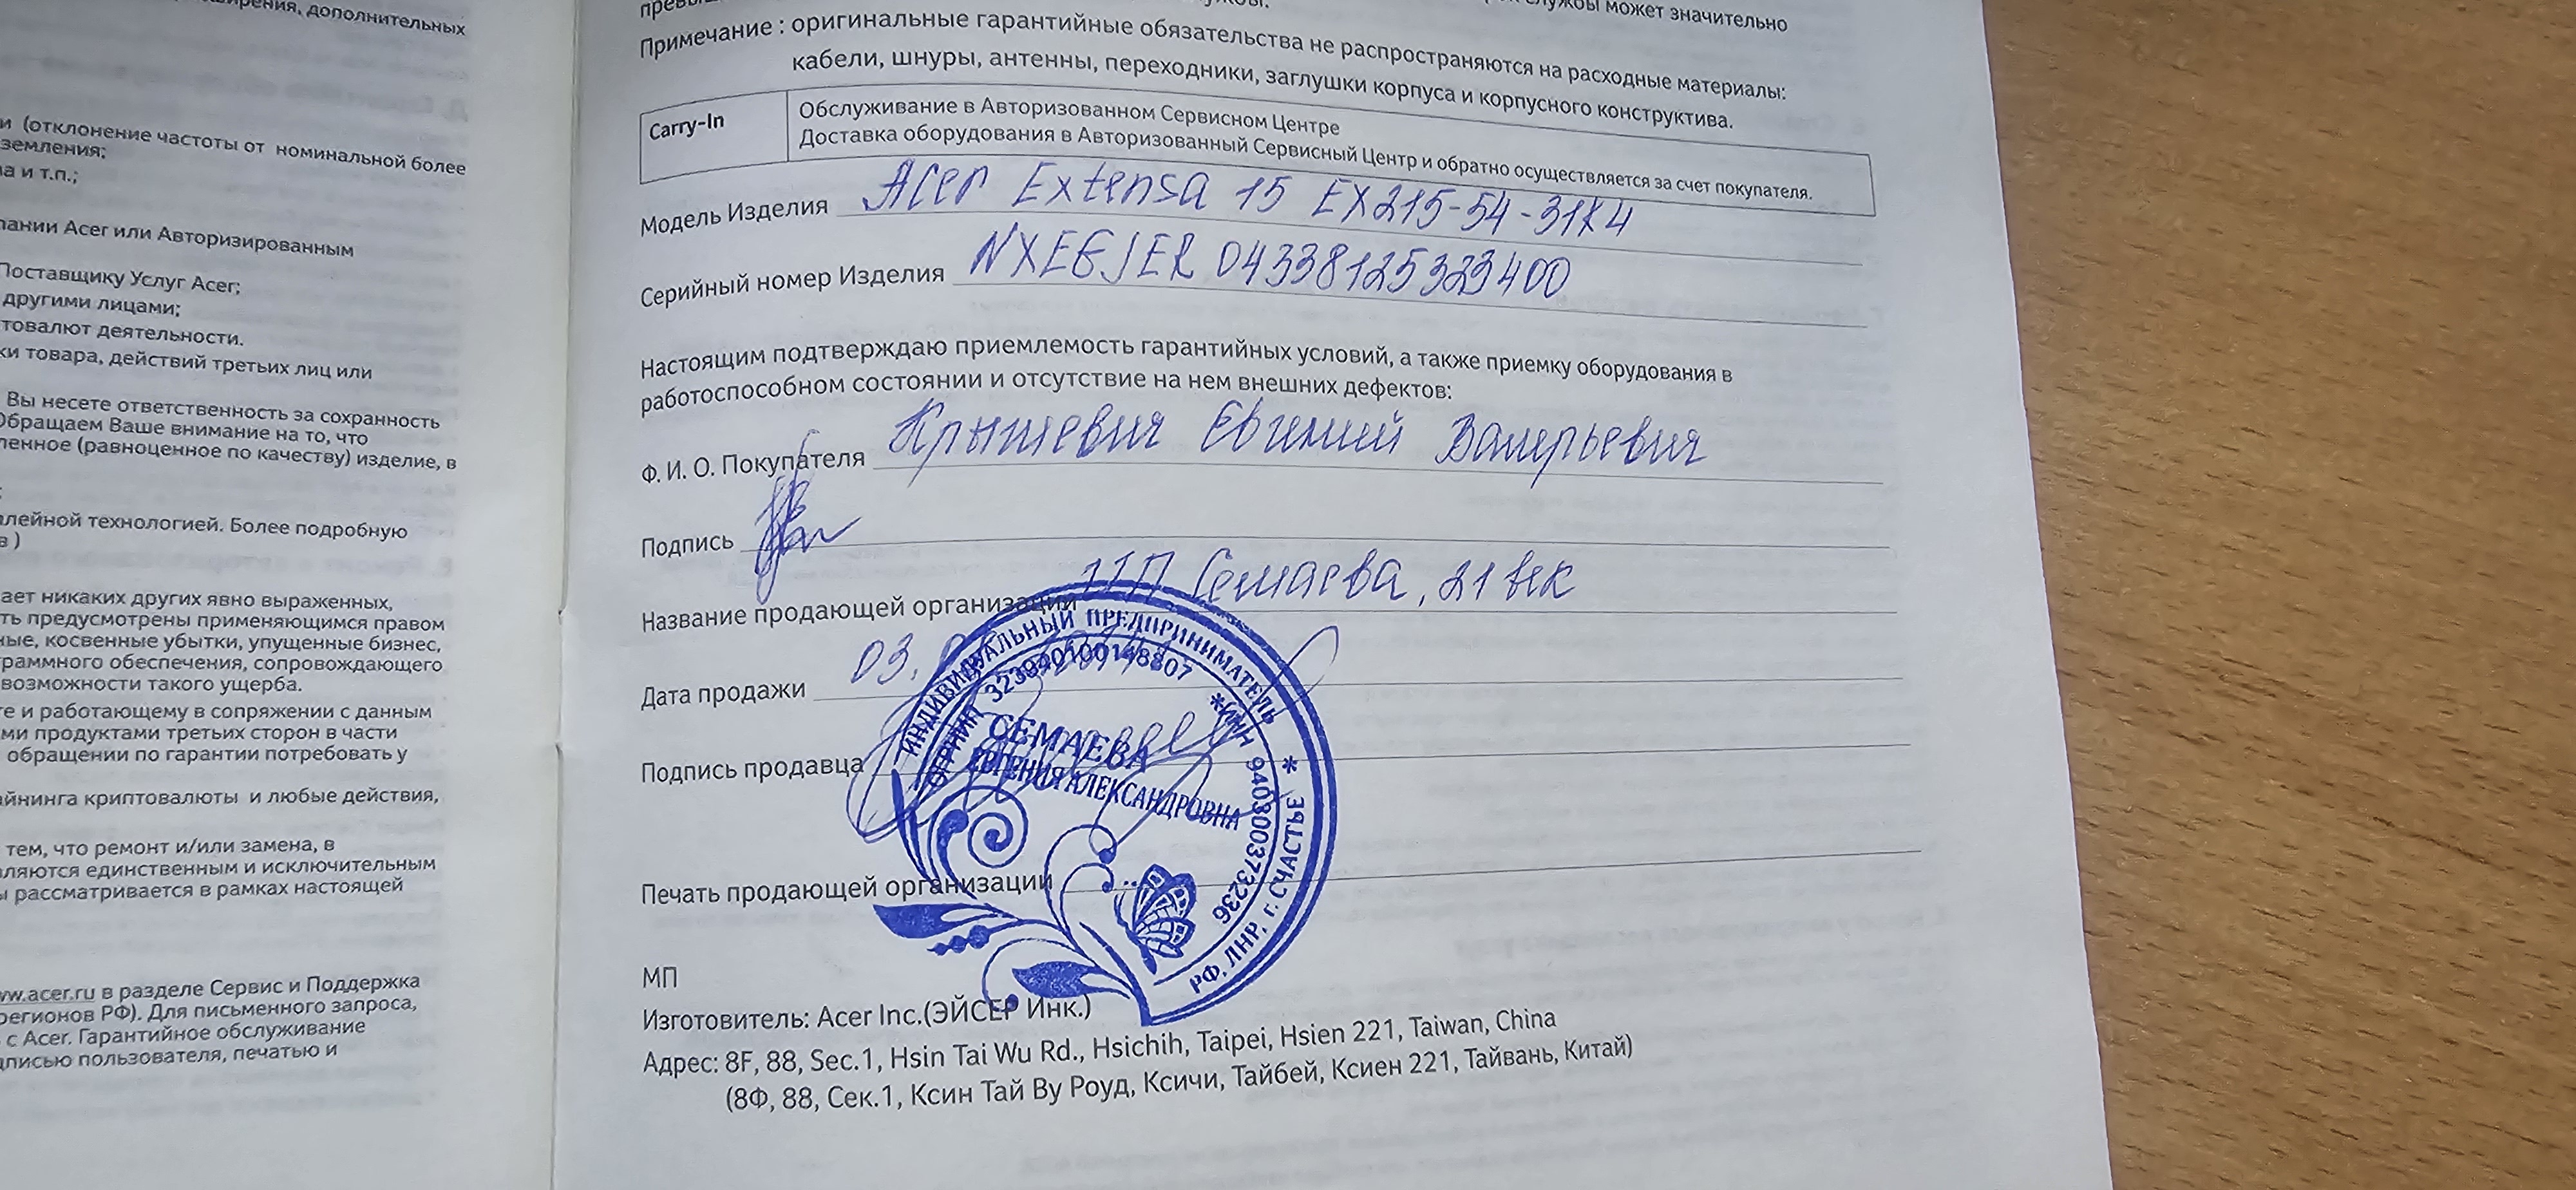 рения, дополнительных
и (отклонение частоты от номинальной более
земления;
а и т.п.;
пании Acer или Авторизированным
Поставщику Услуг Acer;
другими лицами;
товалют деятельности.
ки товара, действий третьих лиц или
Вы несете ответственность за сохранность
Обращаем Ваше внимание на то, что
ленное (равноценное по качеству) изделие, в
плейной технологией. Более подробную
в )
ает никаких других явно выраженных,
ть предусмотрены применяющимся правом
ные, косвенные убытки, упущенные бизнес,
граммного обеспечения, сопровождающего
возможности такого ущерба.
те и работающему в сопряжении с данным
ми продуктами третьих сторон в части
обращении по гарантии потребовать у
айнинга криптовалюты и любые действия,
тем, что ремонт и/или замена, в
вляются единственным и исключительным
ы рассматривается в рамках настоящей
ww.acer.ru в разделе Сервис и Поддержка
регионов РФ). Для письменного запроса,
с Acer. Гарантийное обслуживание
дписью пользователя, печатью и
службы может значительно
Примечание : оригинальные гарантийные обязательства не распространяются на расходные материалы:
кабели, шнуры, антенны, переходники, заглушки корпуса и корпусного конструктива.
Carry-In
Обслуживание в Авторизованном Сервисном Центре
Доставка оборудования в Авторизованный Сервисный Центр и обратно осуществляется за счет покупателя.
Модель Изделия Acer Extensa 15 EX215-54-31K4
Серийный номер Изделия NXEGJER 04338125323400
Настоящим подтверждаю приемлемость гарантийных условий, а также приемку оборудования в
работоспособном состоянии и отсутствие на нем внешних дефектов:
Ф. И. О. Покупателя Евгений Валерьевич
Подпись
Название продающей организации ИП Семаева, 21 век
Дата продажи 03.
Подпись продавца
Печать продающей организации
ИНДИВИДУАЛЬНЫЙ ПРЕДПРИНИМАТЕЛЬ
ОГРНИП 323940100148807 *ИНН 940300373236
СЕМАЕВА
ЕВГЕНИЯ АЛЕКСАНДРОВНА
* РФ, ЛНР, г. СЧАСТЬЕ
МП
Изготовитель: Acer Inc.(ЭЙСЕР Инк.)
Адрес: 8F, 88, Sec.1, Hsin Tai Wu Rd., Hsichih, Taipei, Hsien 221, Taiwan, China
(8Ф, 88, Сек.1, Ксин Тай Ву Роуд, Ксичи, Тайбей, Ксиен 221, Тайвань, Китай)